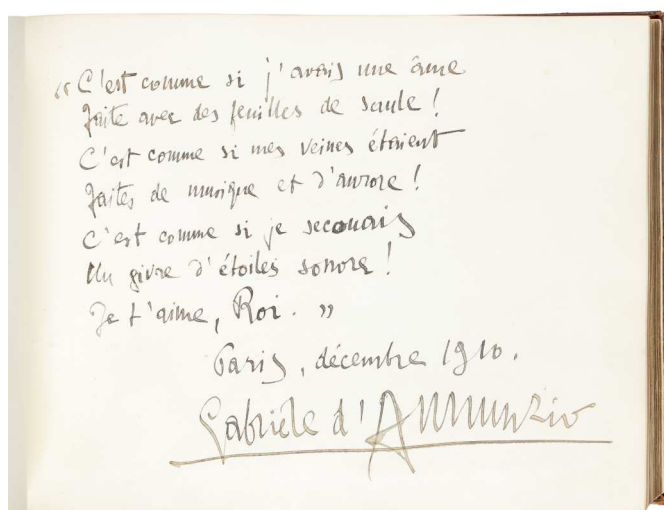 “C'est comme si j'avais une âme
faite avec des feuilles de saule !
C'est comme si mes veines étaient
faites de musique et d'aurore !
C'est comme si je secouais
Un givre d'étoiles sonore !
Je t'aime, Roi. ”
Paris, décembre 1910.
Gabriele d'Annunzio